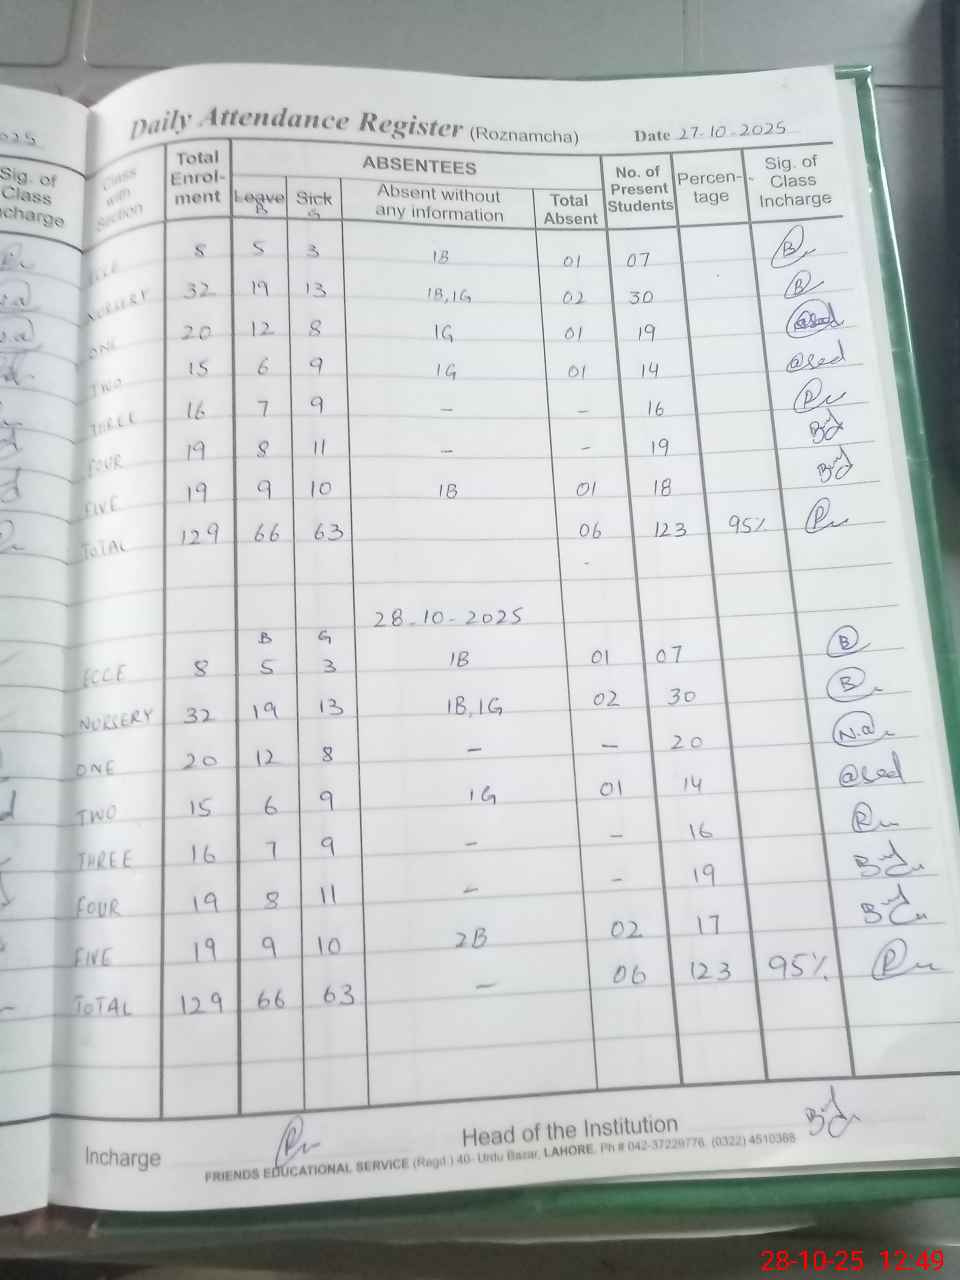 Daily Attendance Register (Roznamcha) Date 27-10-2025
Class with Section Total Enrol-ment ABSENTEES No. of Present Students Percen-tage Sig. of Class Incharge
Leave B Sick G Absent without any information Total Absent
ECCE 8 5 3 1B 01 07 B
NURSERY 32 19 13 1B,1G 02 30 B
ONE 20 12 8 1G 01 19
TWO 15 6 9 1G 01 14
THREE 16 7 9 - - 16
FOUR 19 8 11 - - 19
FIVE 19 9 10 1B 01 18
TOTAL 129 66 63 06 123 95%
28-10-2025
B G
ECCE 8 5 3 1B 01 07 B
NURSERY 32 19 13 1B,1G 02 30 B
ONE 20 12 8 - - 20 N.a
TWO 15 6 9 1G 01 14
THREE 16 7 9 - - 16
FOUR 19 8 11 - - 19
FIVE 19 9 10 2B 02 17
TOTAL 129 66 63 - 06 123 95%
Incharge Head of the Institution
FRIENDS EDUCATIONAL SERVICE (Regd.) 40- Urdu Bazar, LAHORE. Ph # 042-37229776, (0322) 4510368
2025
Sig. of
Class
ncharge
28-10-25 12:49